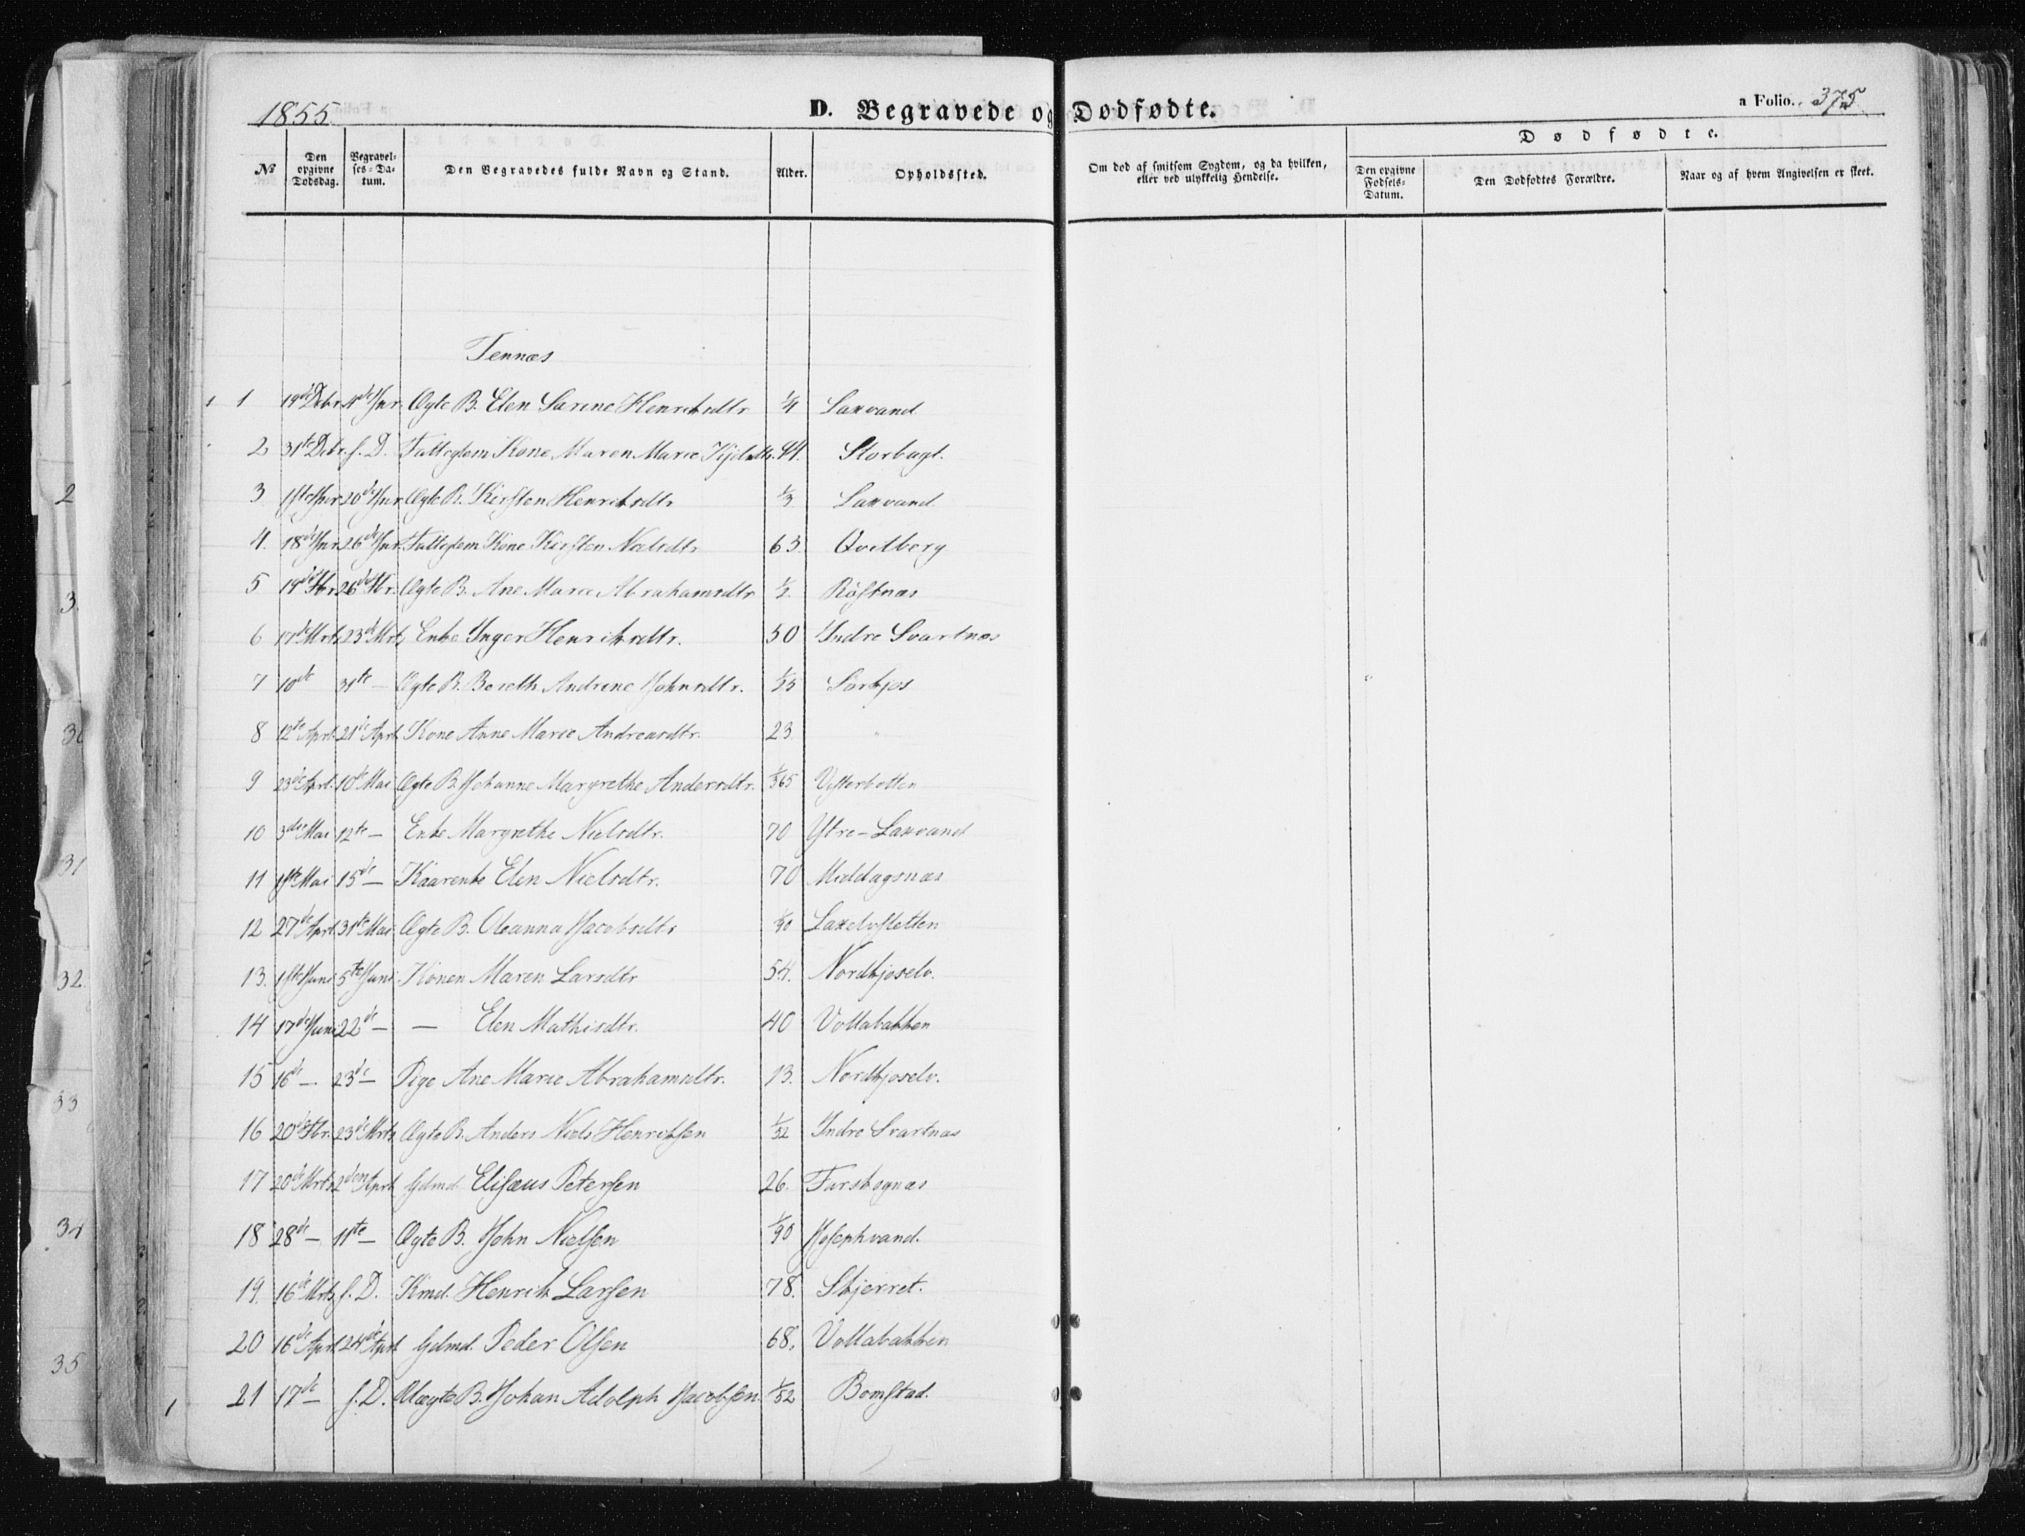 1855.
D. Begravede og Dødfødte.
a Folio. 375.
Dødfødte.
№
Den opgivne Dødsdag.
Begravelses-Datum.
Den Begravedes fulde Navn og Stand.
Alder.
Opholdssted.
Om død af smitsom Sygdom, og da hvilken, eller ved ulykkelig Hendelse.
Den opgivne Fødsels-Datum.
Den Dødfødtes Forældre.
Naar og af hvem Angivelsen er skeet.
Tennæs
1 19de Debr. 4de Jnr. Ægte B. Elen Sarine Henrikrdtr. 1/4 Laxvand
2 31te Debr. s. D. Fattiglem Kone Maren Marie 44. Storbugt.
3 1ste Jnr. 20de Jnr. Ægte B. Kirsten Henrikrdtr. 1/3 Laxvand
4. 18de Jnr. 26de Jnr. Fattiglem Kone Kirsten Nielsdtr. 63. Qvitberg
5 19de Fbr. 26de Fbr. Ægte B. Ane Marie Abrahamsdtr. 1/2. Røstnæs
6 17de Mrts. 23de Mrts. Enke Inger Henrikrdtr. 50 Indre Svartnæs
7 10de 31te — Ægte B. Bereth Andrine Johnsdtr. Sørkjos
8 12te Aprl. 21de Aprl. Kone Anne Marie Andreasdtr. 23 "
9 23de Aprl. 10de Mai Ægte B. Johanne Margrethe Andersdtr. 1/365 Vesterbotten
10 3die Mai 12te — Enke Margrethe Nielsdtr. 70 Ytre-Laxvand
11 1ste Mai 15de — Kaarenke Elen Nielsdtr. 70 Middagsnæs
12 27de Aprl. 31te Mai Ægte B. Oleanna Jacobsdtr. 1/90 Laxelvsletten
13. 1ste Juni 5te Juni Konen Maren Larsdtr 54. Nordkjoselv.
14 17de Juni 22de — — Elen Mathisdtr. 40 Vollabakken
15 16de — 23de — Pige Ane Marie Abrahamsdtr. 13. Nordkjoselv.
16 20de Fbr. 23de Mrts. Ægte B. Anders Niels Henriksen 1/52 Indre Svartnæs
17 20de Mrts. 2den Aprl. Gdmd. Elisæus Petersen 26. Forsbognæs
18 28de — 11te — Ægte B. John Nielsen 1/90 Josephvand.
19. 16de Mrts. s. D. Kmd. Henrik Larsen 78. Skjerret.
20 16de Aprl. 24de Aprl. Gdmd. Peder Olsen 68. Vollabakken
21 17de — s. D. Uægte B. Johan Adolph Jacobsen. 1/52 Bomstad.
2
3
30
31
32
33
34
35